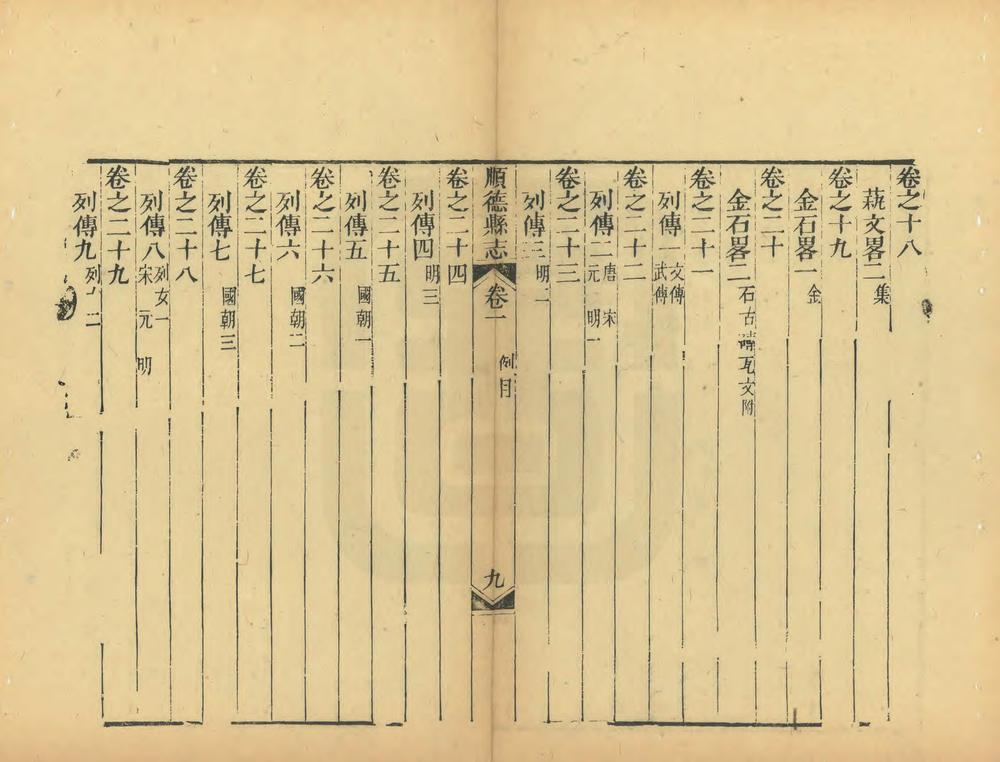 卷之十八
蓺文畧二 集
卷之十九
金石畧一 金
卷之二十
金石畧二 石 古磚瓦文附
卷之二十一
列傳一 文傳 武傳
卷之二十二
列傳二 唐 宋 元 明一
卷之二十三
列傳三 明二
順德縣志 卷一 例目 九
卷之二十四
列傳四 明三
卷之二十五
列傳五 國朝一
卷之二十六
列傳六 國朝二
卷之二十七
列傳七 國朝三
卷之二十八
列傳八 列女一 宋 元 明
卷之二十九
列傳九 列 二